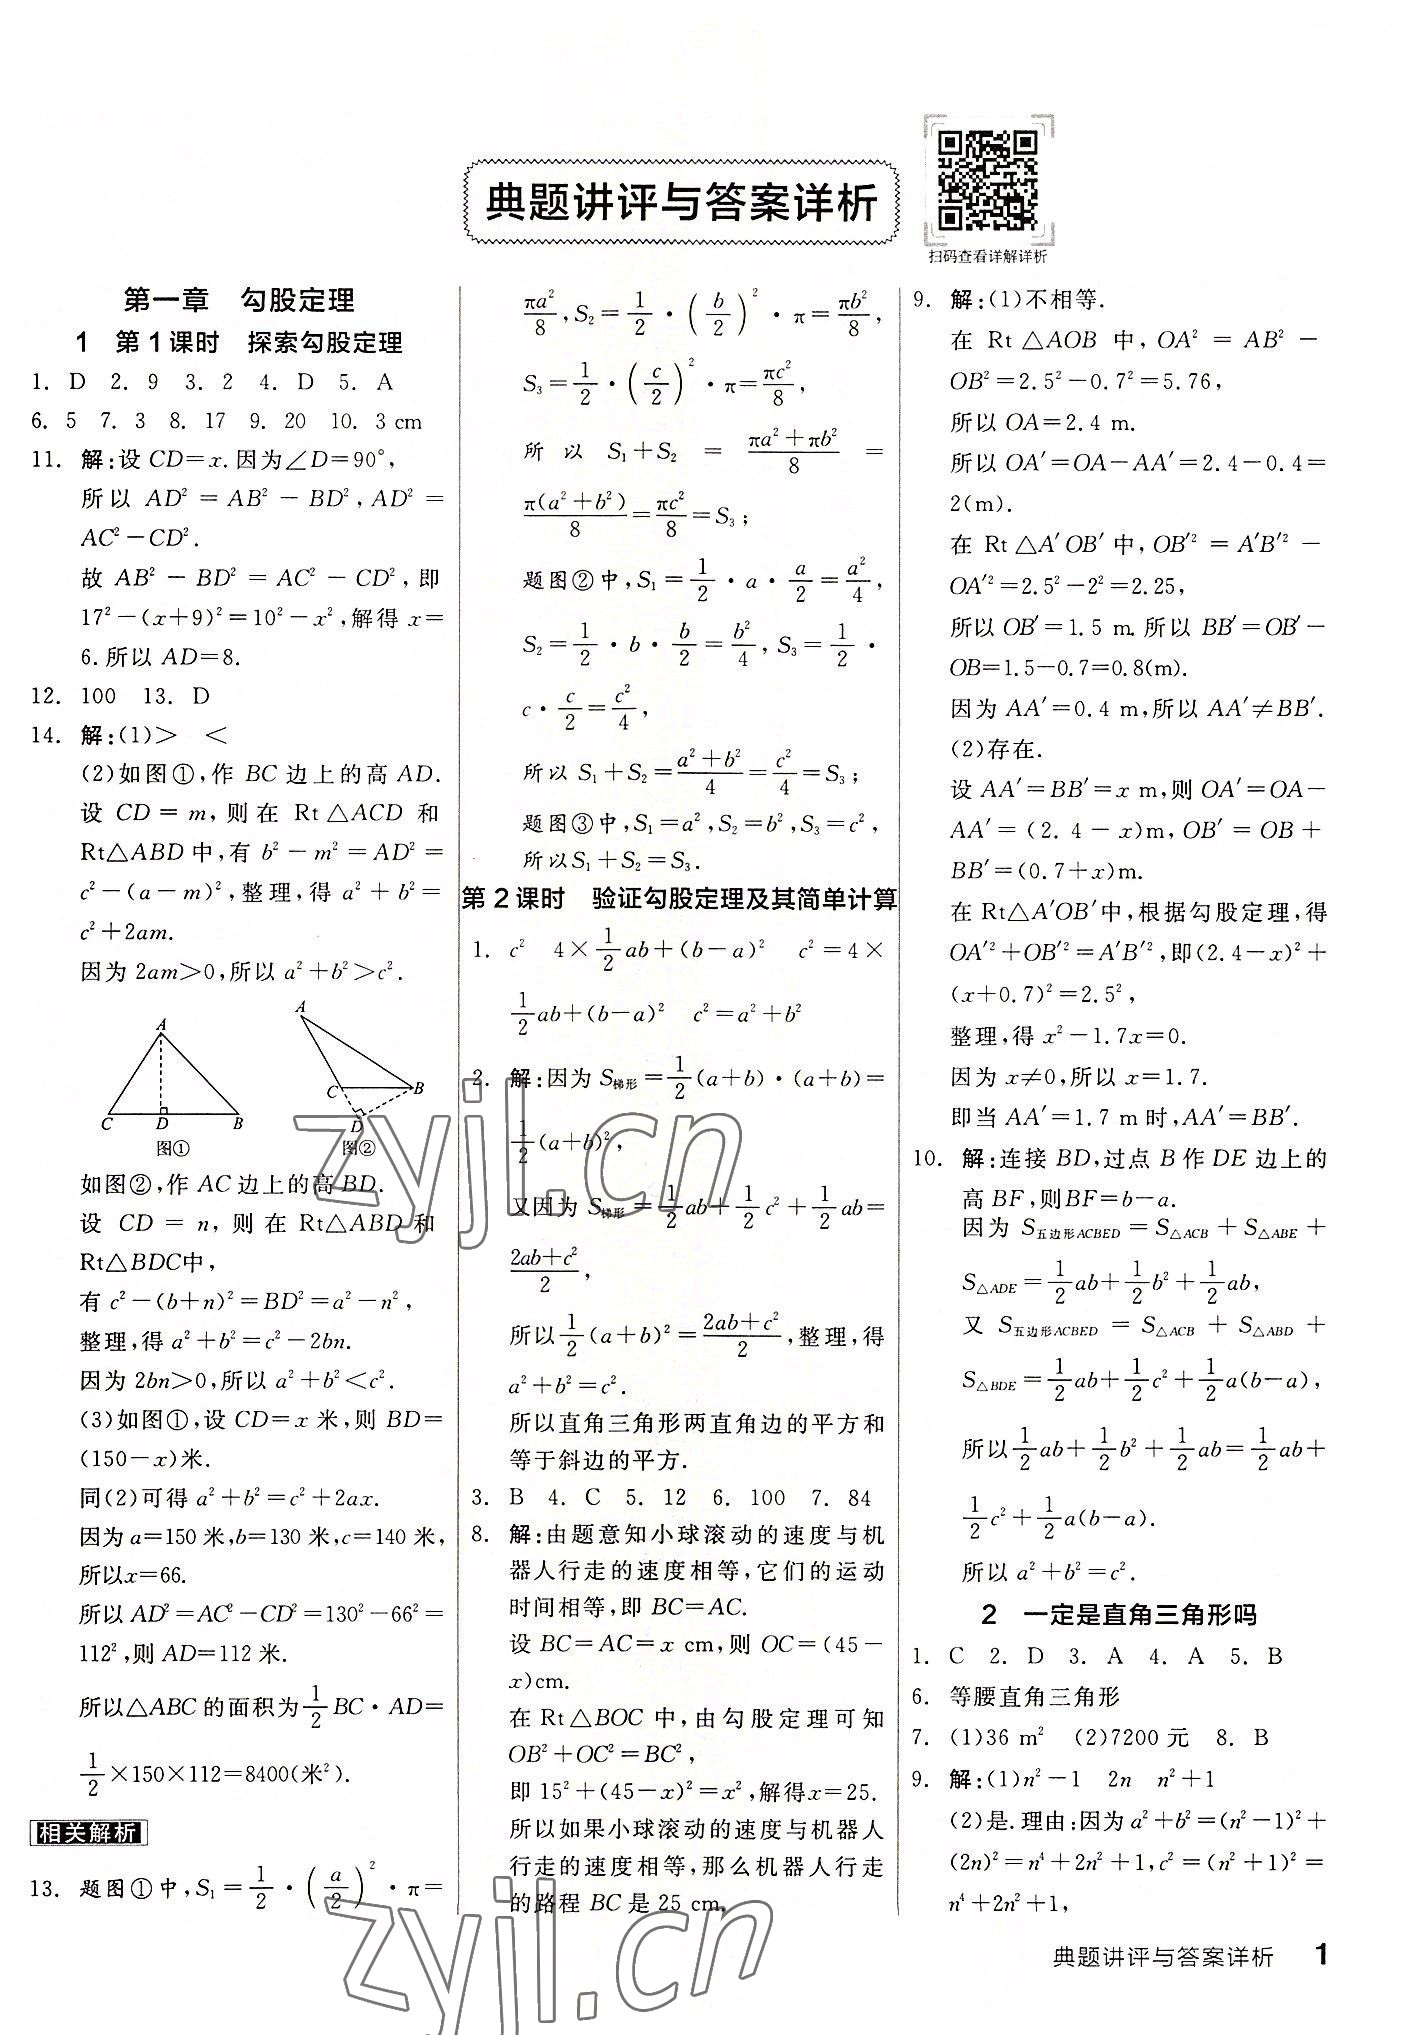 典题讲评与答案详析
扫码查看详解详析
第一章　勾股定理
1　第1课时　探索勾股定理
1. D　2. 9　3. 2　4. D　5. A
6. 5　7. 3　8. 17　9. 20　10. 3 cm
11. 解:设 CD=x.因为∠D=90°,
所以 AD²=AB²-BD²,AD²=
AC²-CD².
故 AB²-BD²=AC²-CD²,即
17²-(x+9)²=10²-x²,解得 x=
6.所以 AD=8.
12. 100　13. D
14. 解:(1)>　<
(2)如图①,作 BC 边上的高 AD.
设 CD=m,则在 Rt△ACD 和
Rt△ABD 中,有 b²-m²=AD²=
c²-(a-m)²,整理,得 a²+b²=
c²+2am.
因为 2am>0,所以 a²+b²>c².
A
C D B
图①
A
C B
D
图②
如图②,作 AC 边上的高 BD.
设 CD=n,则在 Rt△ABD 和
Rt△BDC中,
有 c²-(b+n)²=BD²=a²-n²,
整理,得 a²+b²=c²-2bn.
因为 2bn>0,所以 a²+b²<c².
(3)如图①,设 CD=x 米,则 BD=
(150-x)米.
同(2)可得 a²+b²=c²+2ax.
因为 a=150 米,b=130 米,c=140 米,
所以x=66.
所以 AD²=AC²-CD²=130²-66²=
112²,则 AD=112 米.
所以△ABC 的面积为 1/2 BC·AD=
1/2×150×112=8400(米²).
相关解析
13. 题图①中,S₁=1/2·(a/2)²·π=
πa²/8,S₂=1/2·(b/2)²·π=πb²/8,
S₃=1/2·(c/2)²·π=πc²/8,
所以 S₁+S₂=(πa²+πb²)/8=
π(a²+b²)/8=πc²/8=S₃;
题图②中,S₁=1/2·a·a/2=a²/4,
S₂=1/2·b·b/2=b²/4,S₃=1/2·
c·c/2=c²/4,
所以 S₁+S₂=(a²+b²)/4=c²/4=S₃;
题图③中,S₁=a²,S₂=b²,S₃=c²,
所以S₁+S₂=S₃.
第2课时　验证勾股定理及其简单计算
1. c²　4×1/2ab+(b-a)²　c²=4×
1/2ab+(b-a)²　c²=a²+b²
2. 解:因为 S梯形=1/2(a+b)·(a+b)=
1/2(a+b)²,
又因为 S梯形=1/2ab+1/2c²+1/2ab=
(2ab+c²)/2,
所以1/2(a+b)²=(2ab+c²)/2,整理,得
a²+b²=c².
所以直角三角形两直角边的平方和
等于斜边的平方.
3. B　4. C　5. 12　6. 100　7. 84
8. 解:由题意知小球滚动的速度与机
器人行走的速度相等,它们的运动
时间相等,即 BC=AC.
设 BC=AC=x cm,则 OC=(45-
x)cm.
在 Rt△BOC 中,由勾股定理可知
OB²+OC²=BC²,
即 15²+(45-x)²=x²,解得x=25.
所以如果小球滚动的速度与机器人
行走的速度相等,那么机器人行走
的路程 BC 是 25 cm.
9. 解:(1)不相等.
在 Rt△AOB 中,OA²=AB²-
OB²=2.5²-0.7²=5.76,
所以 OA=2.4 m.
所以 OA′=OA-AA′=2.4-0.4=
2(m).
在 Rt△A′OB′中,OB′²=A′B′²-
OA′²=2.5²-2²=2.25,
所以 OB′=1.5 m.所以 BB′=OB′-
OB=1.5-0.7=0.8(m).
因为 AA′=0.4 m,所以 AA′≠BB′.
(2)存在.
设 AA′=BB′=x m,则 OA′=OA-
AA′=(2.4-x)m,OB′=OB+
BB′=(0.7+x)m.
在 Rt△A′OB′中,根据勾股定理,得
OA′²+OB′²=A′B′²,即(2.4-x)²+
(x+0.7)²=2.5²,
整理,得 x²-1.7x=0.
因为 x≠0,所以 x=1.7.
即当 AA′=1.7 m 时,AA′=BB′.
10. 解:连接 BD,过点 B 作 DE 边上的
高 BF,则BF=b-a.
因为 S五边形ACBED=S△ACB+S△ABE+
S△ADE=1/2ab+1/2b²+1/2ab,
又 S五边形ACBED=S△ACB+S△ABD+
S△BDE=1/2ab+1/2c²+1/2a(b-a),
所以1/2ab+1/2b²+1/2ab=1/2ab+
1/2c²+1/2a(b-a).
所以 a²+b²=c².
2　一定是直角三角形吗
1. C　2. D　3. A　4. A　5. B
6. 等腰直角三角形
7. (1)36 m²　(2)7200 元　8. B
9. 解:(1)n²-1　2n　n²+1
(2)是.理由:因为 a²+b²=(n²-1)²+
(2n)²=n⁴+2n²+1,c²=(n²+1)²=
n⁴+2n²+1,
典题讲评与答案详析　1
zyjl.cn
zyjl.cn